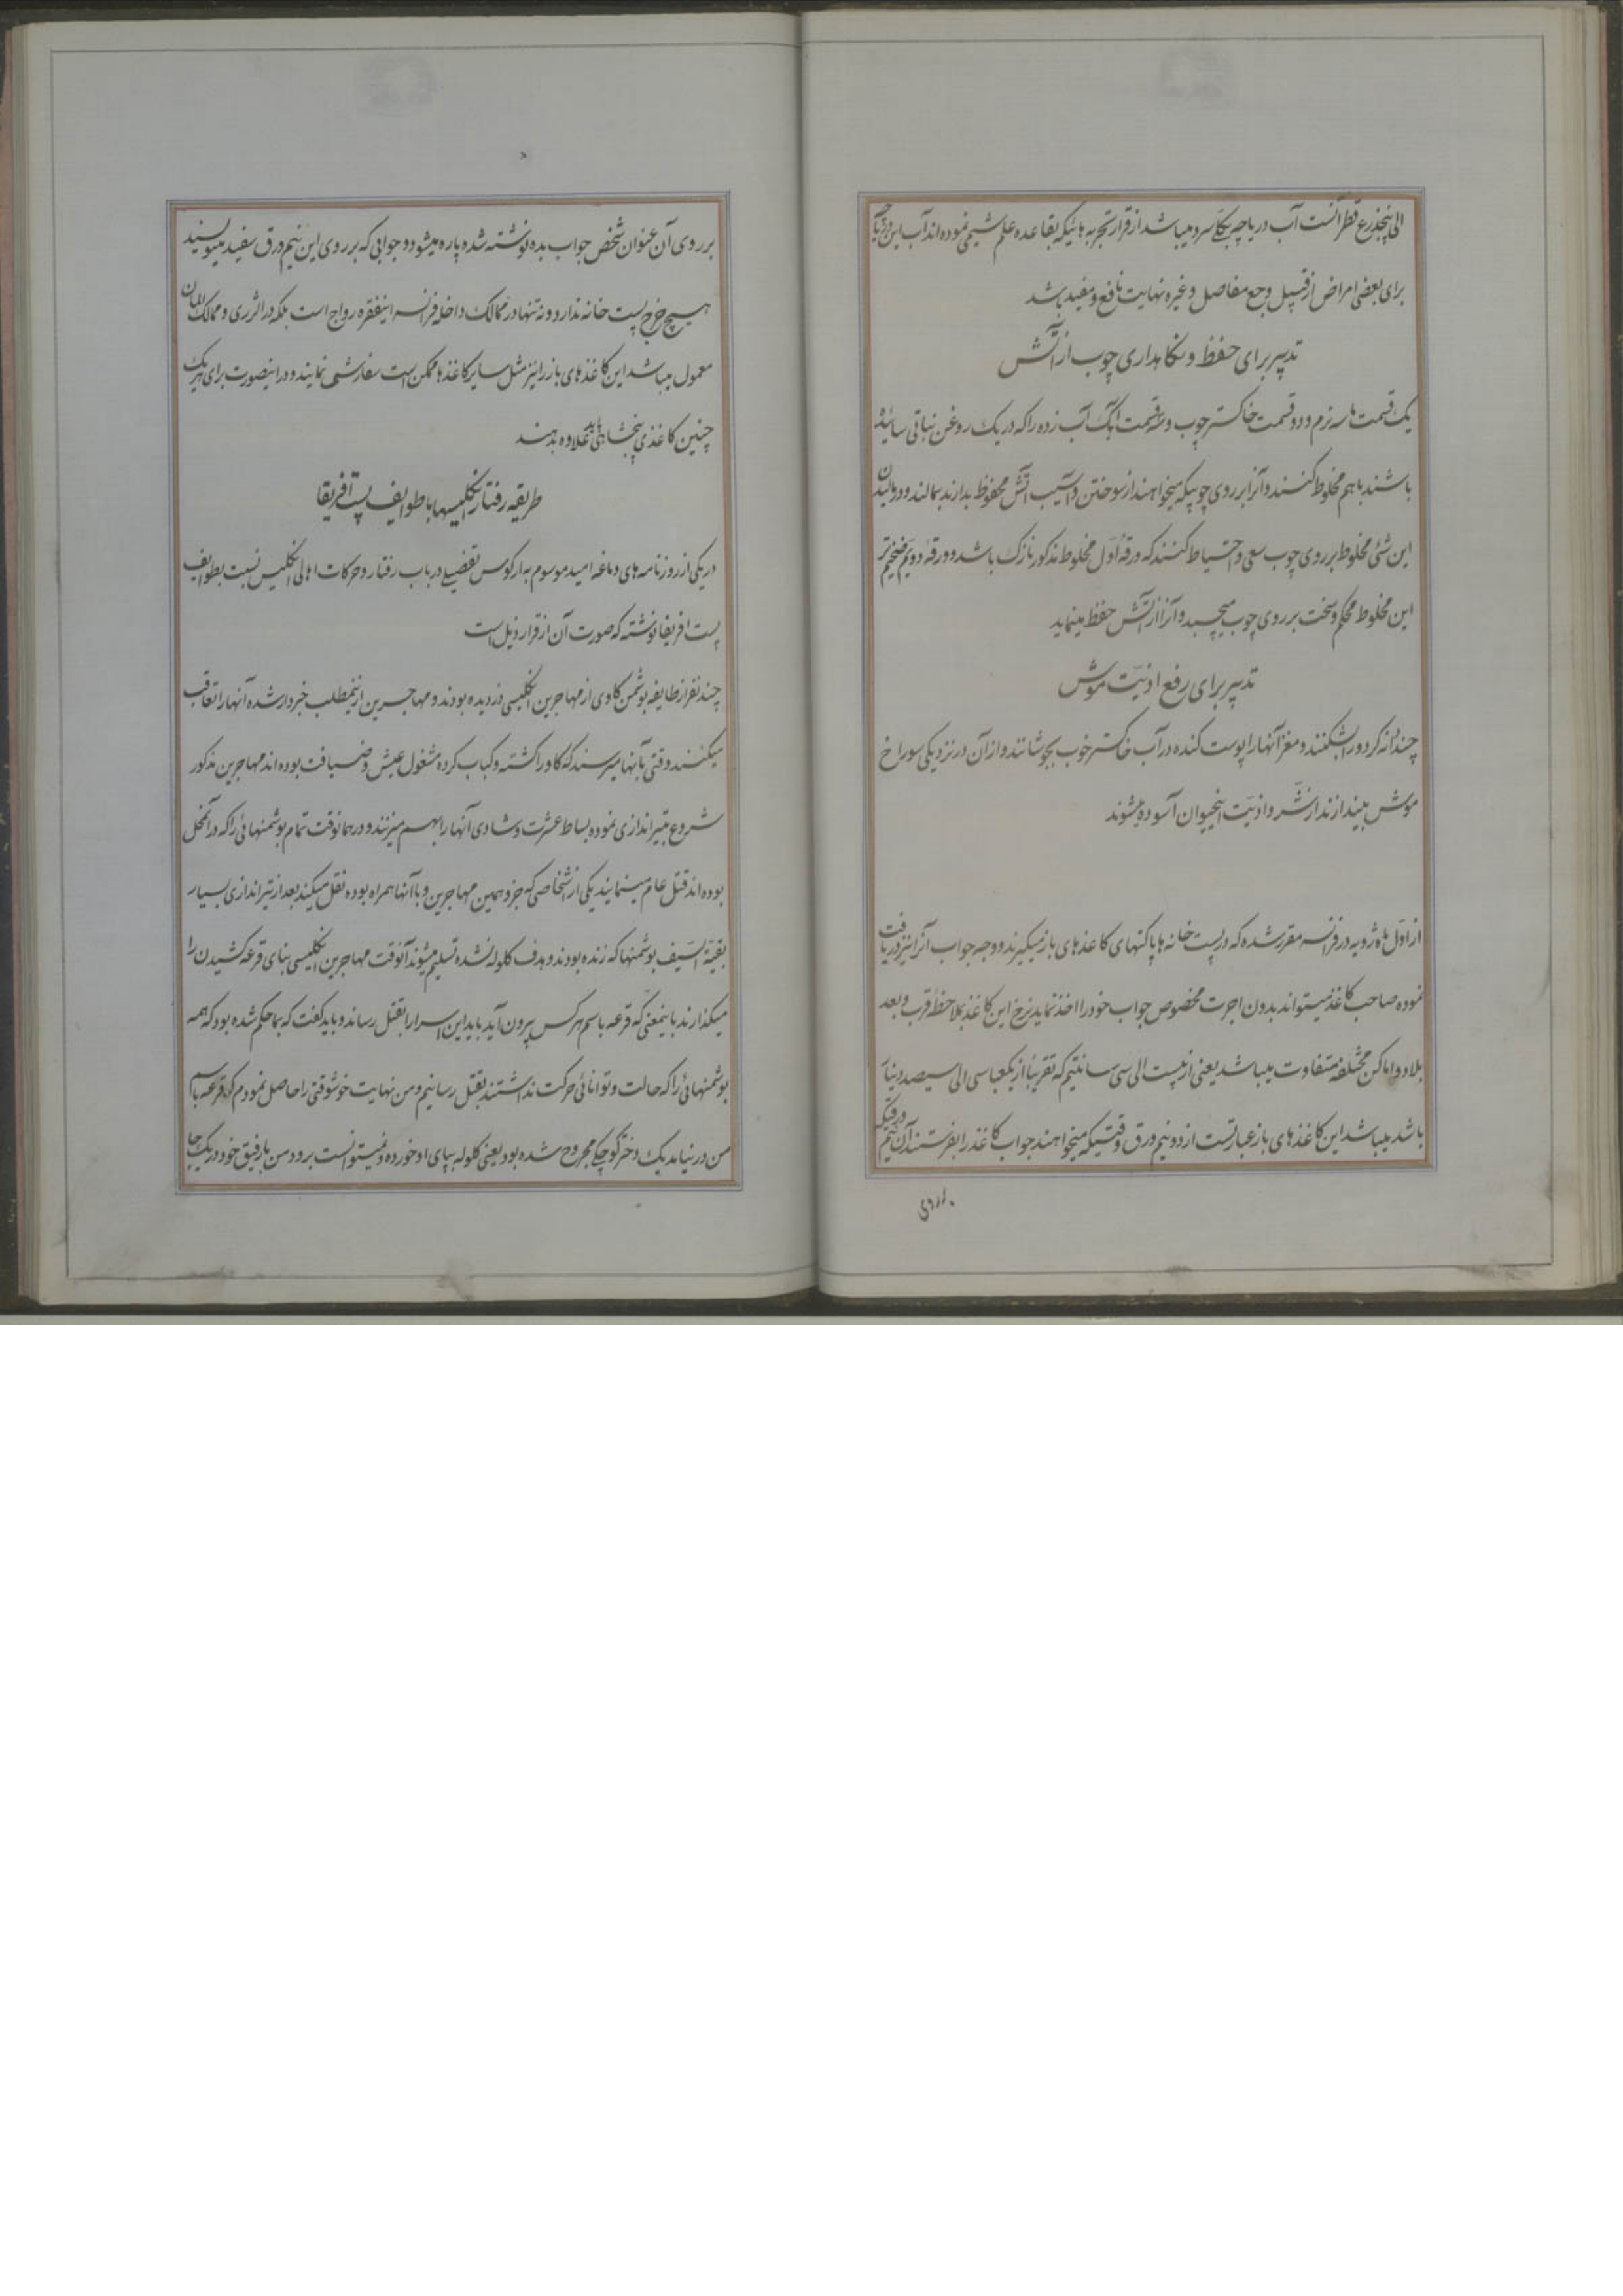 الی پنجذرع قطر آنست آب دریاچه بکلی سرد میباشد از قرار تجربه هائیکه بقاعده علم شیمی نموده اند آب این دریاچه
برای بعضی امراض از قبیل وجع مفاصل و غیره نهایت نافع و مفید باشد
تدبیر برای حفظ و نگاهداری چوب از آتش
یک قسمت ماسه نرم و دو قسمت خاکستر چوب و سه قسمت آهک آب زده را که در یک روغن نباتی سائیده
باشند باهم مخلوط کنند و آنرا بر روی چوبیکه میخواهند از سوختن و آسیب آتش محفوظ بدارند بمالند و در مالیدن
این شئی مخلوط بر روی چوب سعی و احتیاط کنند که ورقه اول مخلوط مذکور نازک باشد و ورقه دویم ضخیم تر
این مخلوط محکم و سخت بر روی چوب میچسبد و آنرا از آتش حفظ مینماید
تدبیر برای رفع اذیت موش
چند دانه کردو را بشکنند و مغز آنها را پوست کنده در آب خاکستر خوب بجوشانند و از آن در نزدیکی سوراخ
موش بیندازند از شر و اذیت اینحیوان آسوده میشوند
از اول ماه ژویه در فرانسه مقرر شده که در پست خانه ها پاکتهای کاغذهای باز میگیرند و وجه جواب آنرا نیز دریافت
نموده صاحب کاغذ میتواند بدون اجرت مخصوص جواب خود را اخذ نماید نرخ این کاغذ بملاحظه قرب و بعد
بلاد و اماکن مختلفه متفاوت میباشد یعنی از بیست الی سی سانتیم که تقریبا از یکعباسی الی سیصد دینار
باشد میباشد این کاغذهای باز عبارتست از دو نیم ورق وقتیکه میخواهند جواب کاغذ را بفرستند آن نیم ورقیکه
بر روی
بر روی آن عنوان شخص جواب بده نوشته شده پاره میشود و جوابی که بر روی این نیم ورق سفید مینویسند
هیچ خرج پست خانه ندارد و نه تنها در ممالک داخله فرانسه اینفقره رواج است بلکه در الژری و ممالک المان
معمول میباشد این کاغذهای باز را نیز مثل سایر کاغذها ممکن است سفارشی نمایند و در اینصورت برای هر یک
چنین کاغذی پنجشاهی باید علاوه بدهند
طریقه رفتار انگلیسها با طوایف پست افریقا
در یکی از روزنامه های دماغه امید موسوم به ارکوس تفضیلی در باب رفتار و حرکات اهالی انگلیس نسبت بطوایف
پست افریقا نوشته که صورت آن از قرار ذیل است
چند نفر از طایفه بوشمن کاوی از مهاجرین انگلیسی دزدیده بودند و مهاجرین از اینمطلب خبردار شده آنها را تعاقب
میکنند وقتی بآنها میرسند که کاو را کشته و کباب کرده مشغول عیش و ضیافت بوده اند مهاجرین مذکور
شروع بتیراندازی نموده بساط عشرت و شادی آنها را بهم میزنند و در همانوقت تمام بوشمنهائی را که در آنمحل
بوده اند قتل عام مینمایند یکی از اشخاصی که جزو همین مهاجرین و با آنها همراه بوده نقل میکند بعد از تیراندازی بسیار
بقیة السیف بوشمنها که زنده بودند و هدف کلوله نشده تسلیم میشوند آنوقت مهاجرین انگلیسی بنای قرعه کشیدن را
میکذارند باینمعنی که قرعه باسم هر کس بیرون آید باید این اسرا را بقتل رساند و باید کفت که بما حکم شده بود که همه
بوشمنهائی را که حالت و توانائی حرکت نداشتند بقتل رسانیم و من نهایت خوشوقتی را حاصل نمودم که قرعه باسم
من در نیامد یک دختر کوچکی مجروح شده بود یعنی کلوله بپای او خورده و نمیتوانست برود من با رفیق خود در یک جا